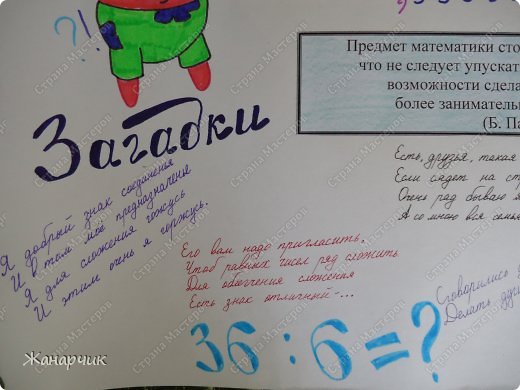 ?!
Предмет математики сто
что не следует упускат
возможности сдела
более занимательн
(Б. Па
Загадки
Есть, друзья, такая
Если сядет на стр
Очень рад бываю я
А со мною вся семья
Я добрый знак соединения
И в том мое предназначение
Я для сложения гожусь
И этим очень я горжусь.
Его вам надо пригласить,
Чтоб равных чисел ряд сложить
Для облегчения сложения
Есть знак отличный -...
Сговорились
Делать
36 : 6 = ?
Жанарчик
Страна Мастеров